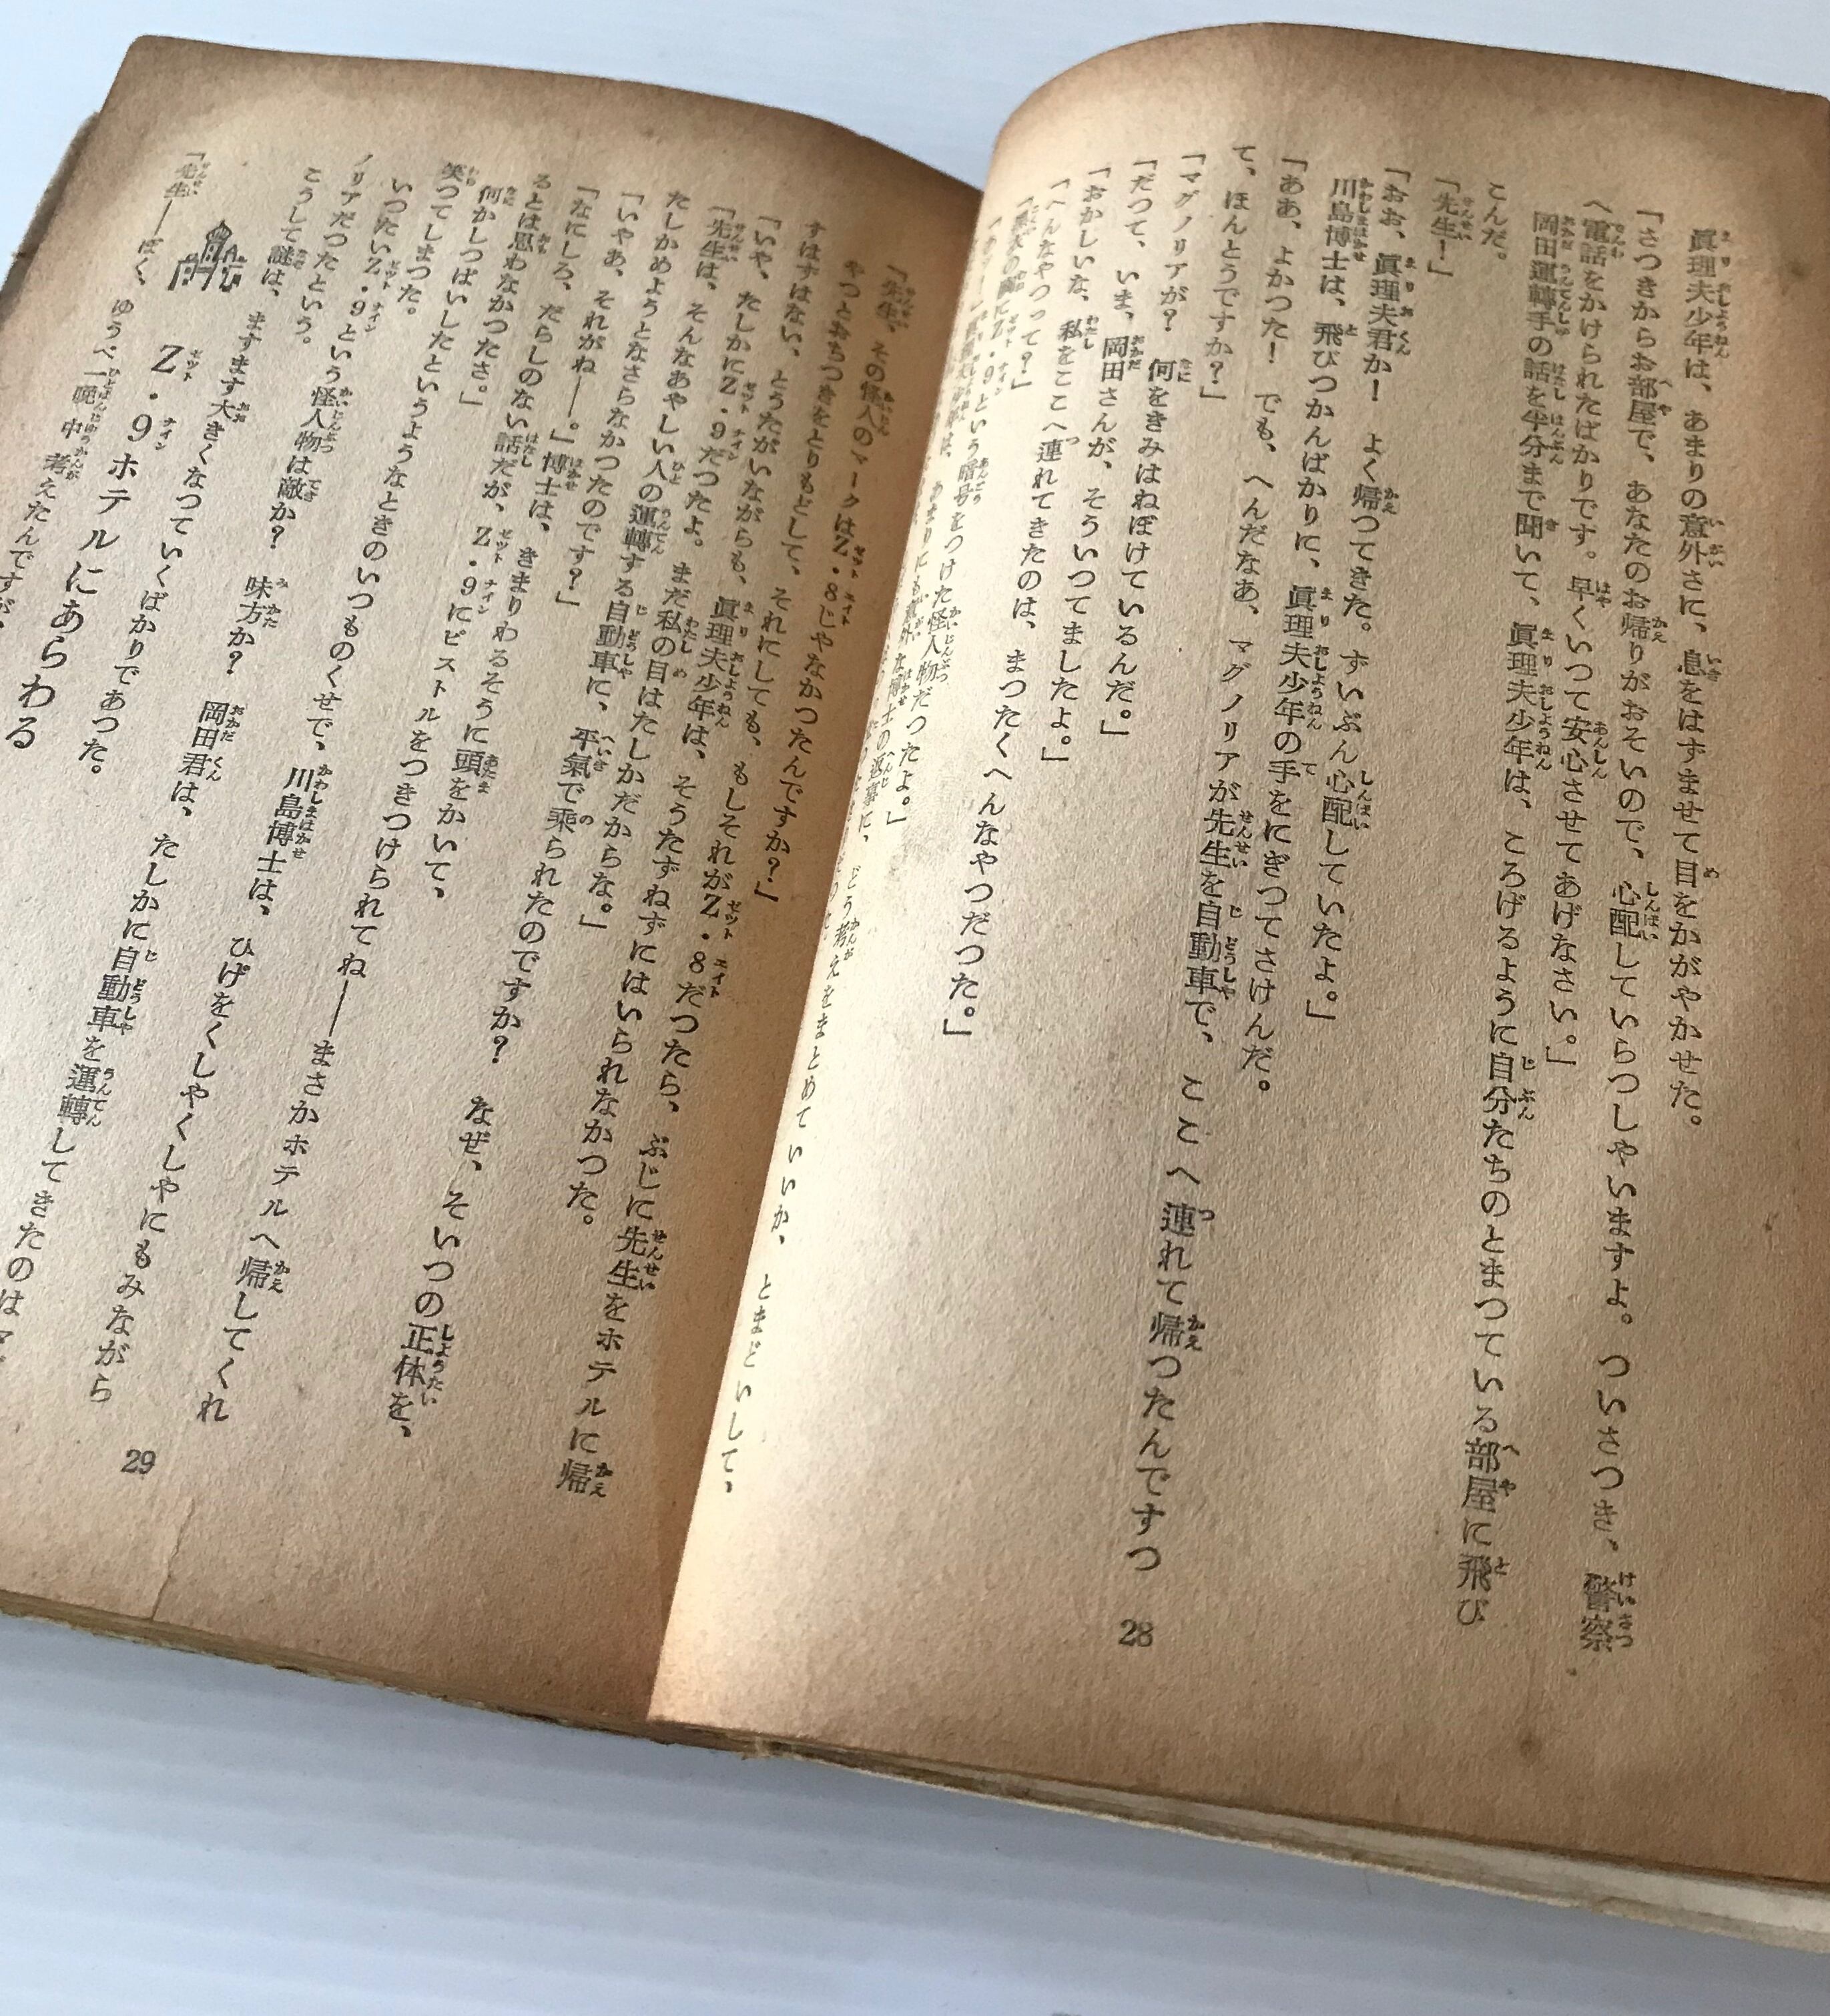 眞理夫少年は、あまりの意外さに、息をはずませて目をかがやかせた。
「さつきからお部屋で、あなたのお帰りがおそいので、心配していらつしやいますよ。ついさつき、警察
へ電話をかけられたばかりです。早くいつて安心させてあげなさい。」
岡田運轉手の話を半分まで聞いて、眞理夫少年は、ころげるように自分たちのとまつている部屋に飛び
こんだ。
「先生！」
「おお、眞理夫君か！　よく帰つてきた。ずいぶん心配していたよ。」
川島博士は、飛びつかんばかりに、眞理夫少年の手をにぎつてさけんだ。
「ああ、よかつた！　でも、へんだなあ、マグノリアが先生を自動車で、ここへ連れて帰つたんですつ
て、ほんとうですか？」
「マグノリアが？　何をきみはねぼけているんだ。」
「だつて、いま、岡田さんが、そういつてましたよ。」
「おかしいな、私をここへ連れてきたのは、まつたくへんなやつだつた。」
「へんなやつって？」
Z・9という暗号をつけた怪人物だつたよ。」
あまりにも意外な博士の返事に、どう考えをまとめていいか、とまどいして、
28
「先生、その怪人のマークはZ・8じやなかつたんですか？」
やつとおちつきをとりもどして、それにしても、もしそれがZ・8だつたら、ぶじに先生をホテルに帰
すはずはない、とうたがいながらも、眞理夫少年は、そうたずねずにはいられなかつた。
「いや、たしかにZ・9だつたよ。まだ私の目はたしかだからな。」
「先生は、そんなあやしい人の運轉する自動車に、平氣で乘られたのですか？　なぜ、そいつの正体を、
たしかめようとなさらなかつたのです？」
「いやあ、それがね――。」博士は、きまりわるそうに頭をかいて、
「なにしろ、だらしのない話だが、Z・9にピストルをつきつけられてね――まさかホテルへ帰してくれ
るとは思わなかつたさ。」
何かしつぱいしたというようなときのいつものくせで、川島博士は、ひげをくしやくしやにもみながら
笑つてしまつた。
いつたいZ・9という怪人物は敵か？　味方か？　岡田君は、たしかに自動車を運轉してきたのはマグ
ノリアだつたという。
こうして謎は、ますます大きくなつていくばかりであつた。
Z・9ホテルにあらわる
「先生――ぼく、ゆうべ一晩中考えたんですが、
29